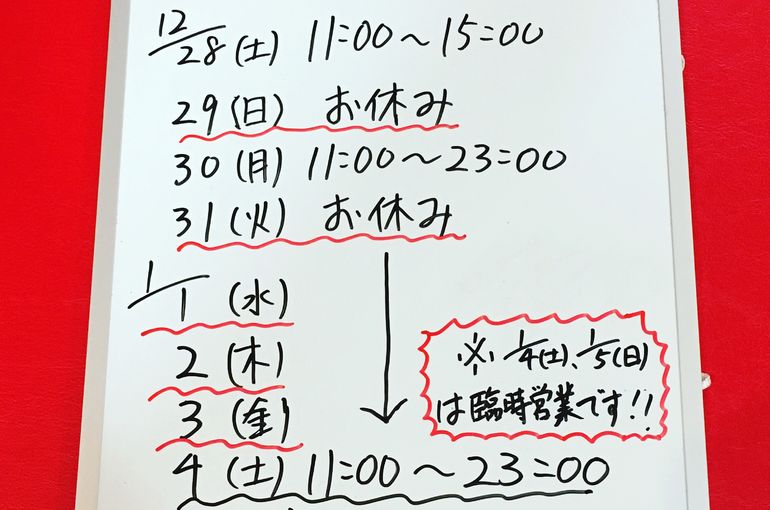 12/28(土) 11:00〜15:00
29(日) お休み
30(月) 11:00〜23:00
31(火) お休み
1/1(水)
2(木)
3(金)
4(土) 11:00〜23:00
※1/4(土)、1/5(日)
は臨時営業です!!